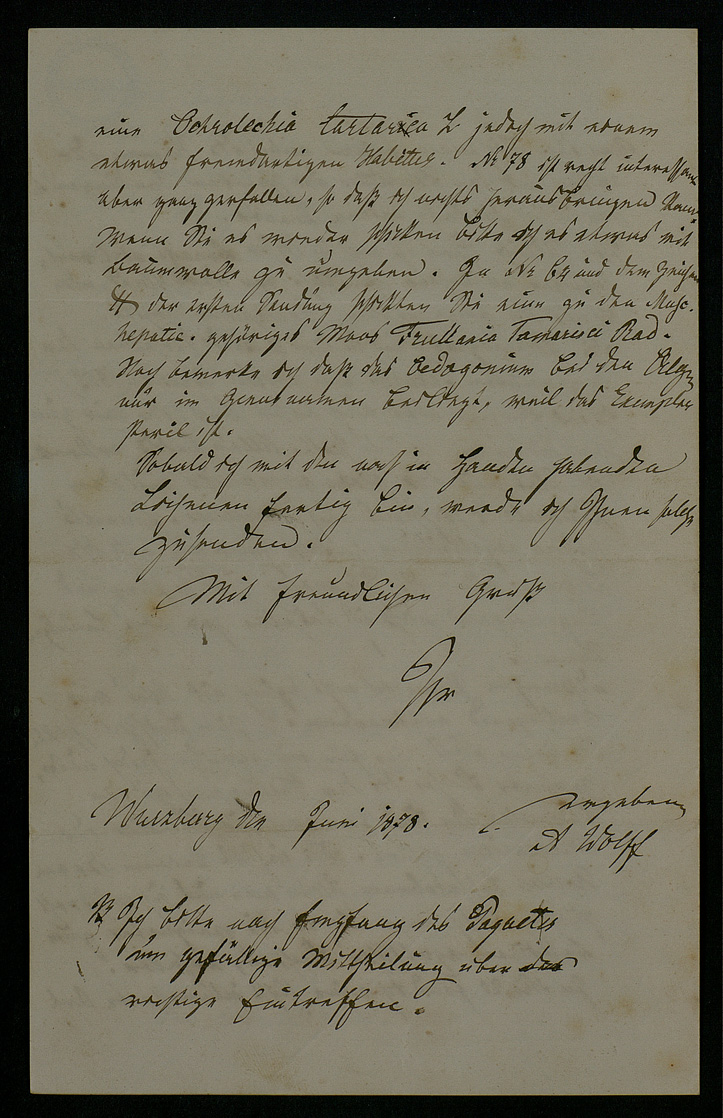 eine Ochrolechia tartarica L jedoch mit einem
etwas fremdartigen Habitus. No 78 ist recht interessant
aber ganz zerfallen, so daß ich nichts herausbringen kann
wenn Sie es wieder schicken bitte ich es etwas mit
Baumwolle zu umgeben. Zu No 64 und dem Zeichen
der ersten Sendung schickten Sie eine zu den Musc.
hepatic. gehöriges Moos Frullania Tamarisci Rad.
Noch bemerke ich daß das Oedogonium bei den Algen
nur im Genusnamen beiliegt, weil das Exemplar
steril ist.
Sobald ich mit den noch in Handen habenden
Lichenen fertig bin, werde ich Ihnen solche
zusenden.
Mit freundlichen Gruß
Ihr
Wurzburg den Juni 1878.
ergebener
A Wolff
Ich bitte nach Empfang des Paquetes
um gefällige Mittheilung über das
richtige Eintreffen.